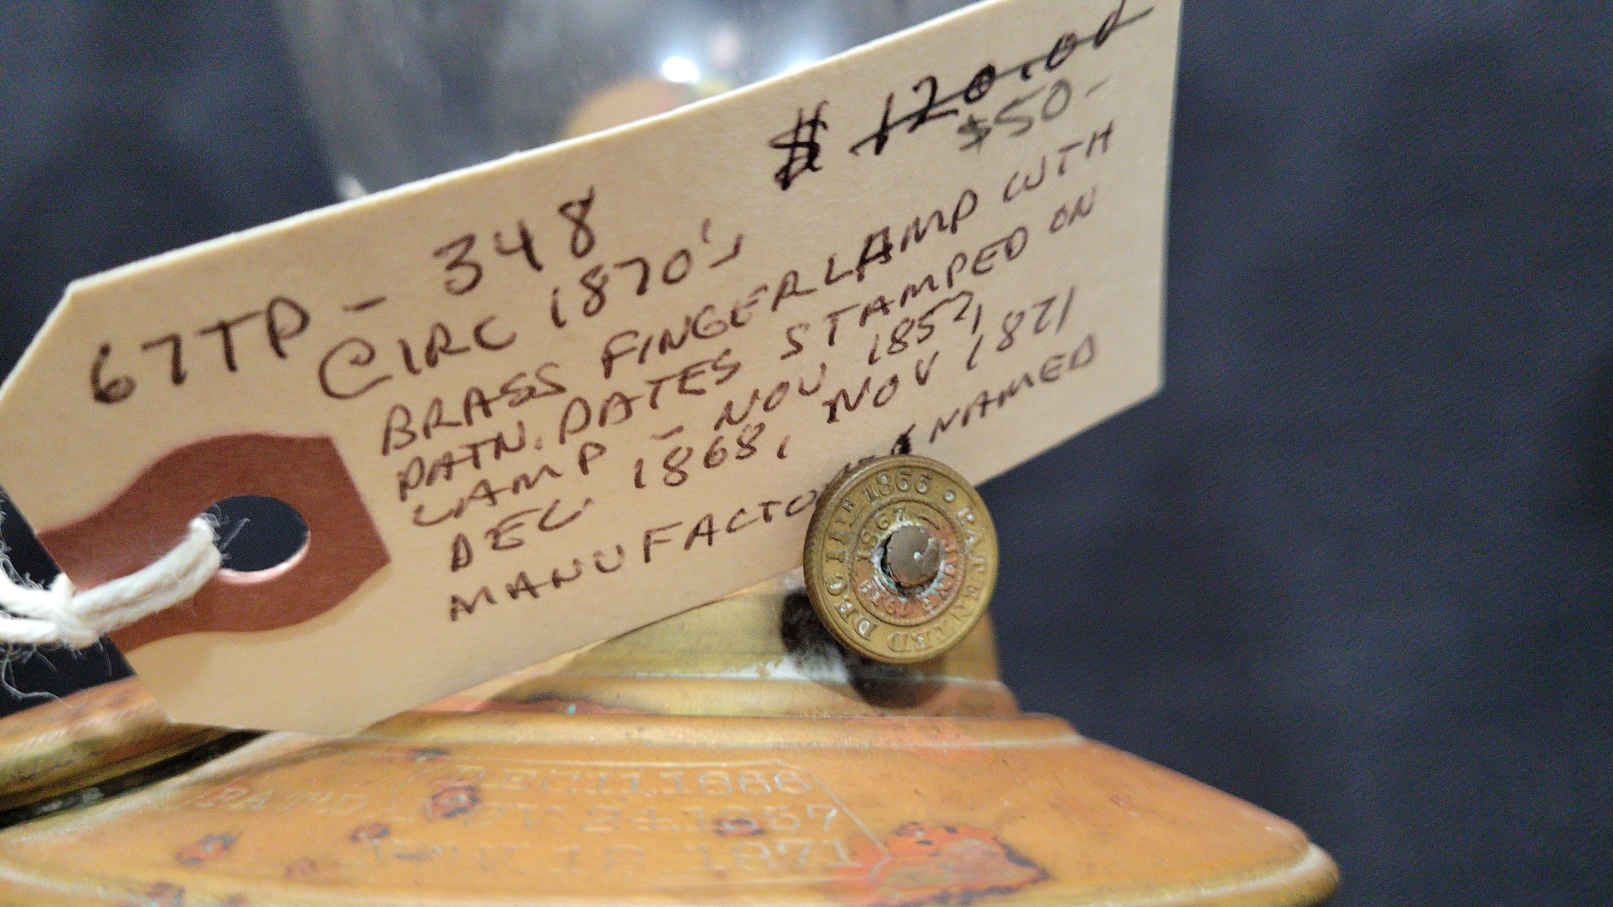 $ 120.00
$50-
67TP - 348
CIRC 1870's
BRASS FINGERLAMP WITH
PATN. DATES STAMPED ON
LAMP - NOV 1857,
DEC. 1868, NOV 1871
MANUFACTO NAMED
PATENTED DEC 11TH 1866
JUNE 1867
DEC. 11. 1866
PATND. 24. 1857
18. 1871